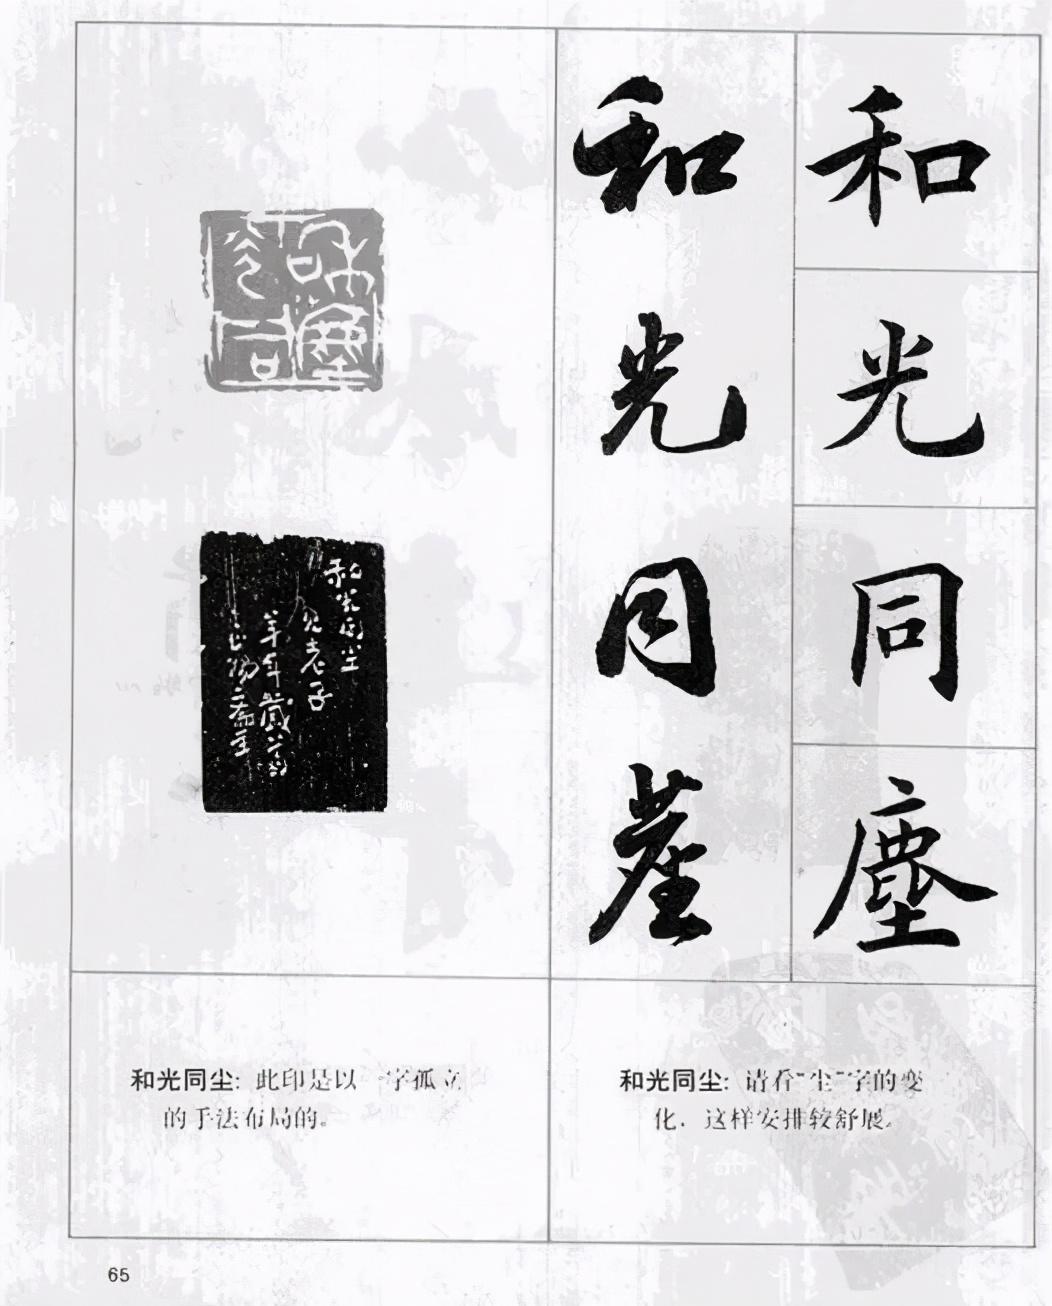 和光同塵
和光同塵
和光同尘
见老子
和光同尘：请看“尘”字的变
化，这样安排较舒展。
和光同尘：此印是以一字孤立
的手法布局的。
65